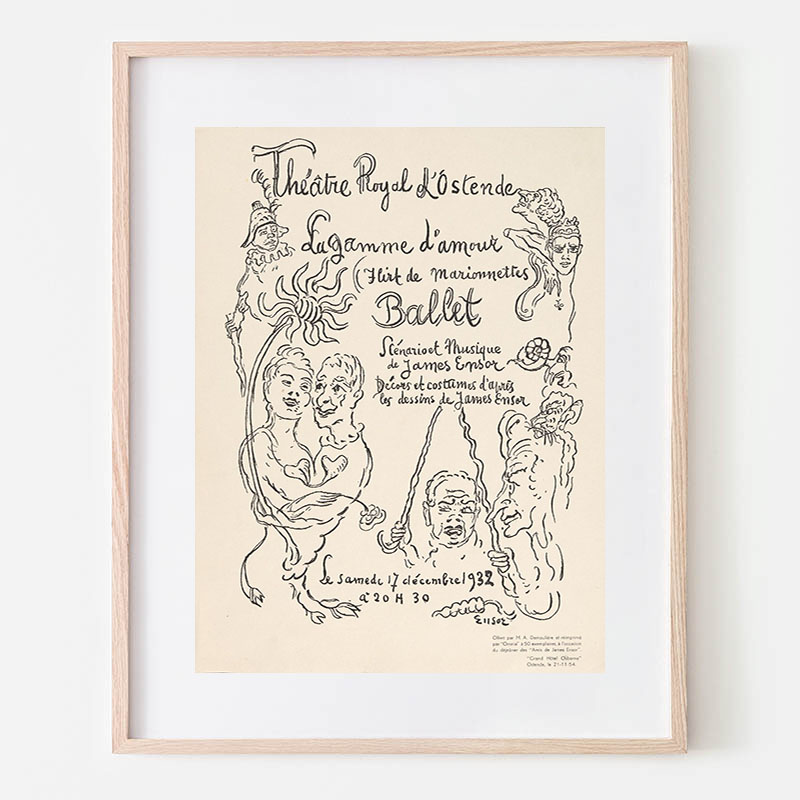 Théâtre Royal d'Ostende
La gamme d'amour
(Flirt de Marionnettes
Ballet
Scénario et Musique
de James Ensor
Décors et costumes d'après
les dessins de James Ensor
Le samedi 17 décembre 1932
à 20 H 30
Ensor
Offert par M. A. et réimprimé
par "Ororia" à 50 exemplaires à l'occasion
du déjeuner des "Amis de James Ensor".
"Grand Hôtel Osborne"
Ostende, le 21-11 54.